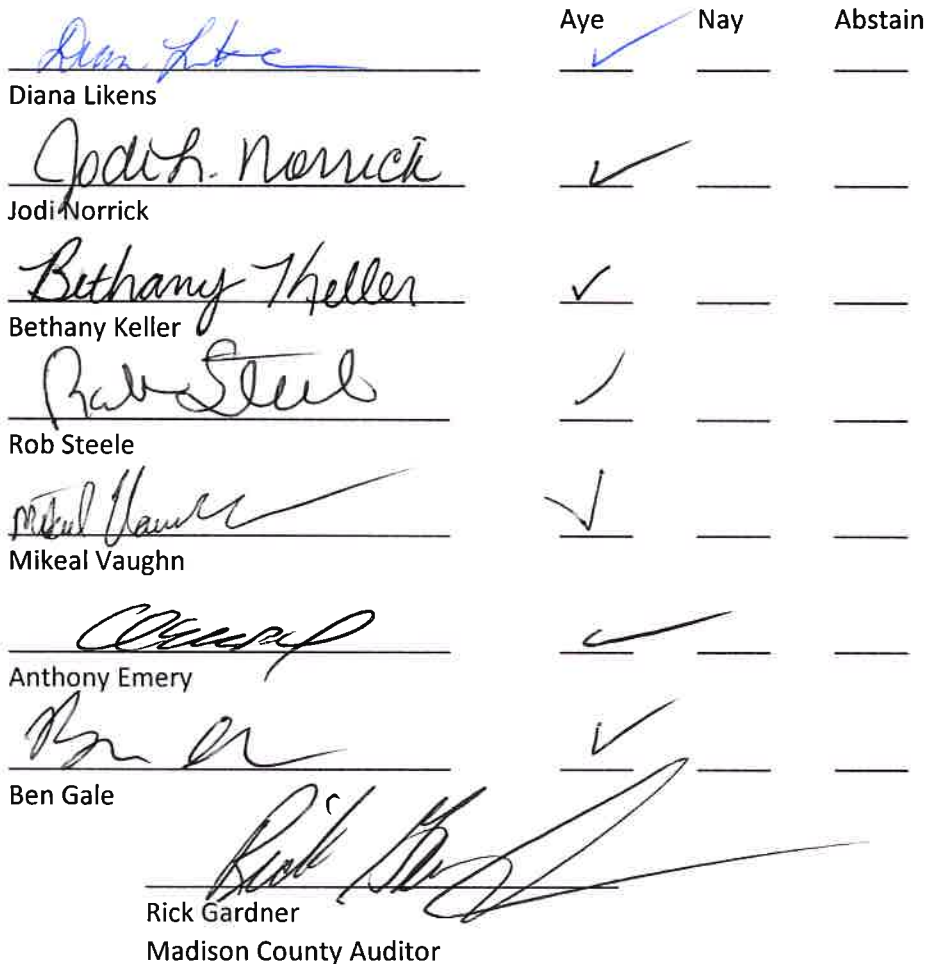 Aye Nay Abstain
Diana Likens
Jodi L. Norrick
Jodi Norrick
Bethany Keller
Bethany Keller
Rob Steele
Rob Steele
Mikeal Vaughn
Anthony Emery
Ben Gale
Rick
Rick Gardner
Madison County Auditor